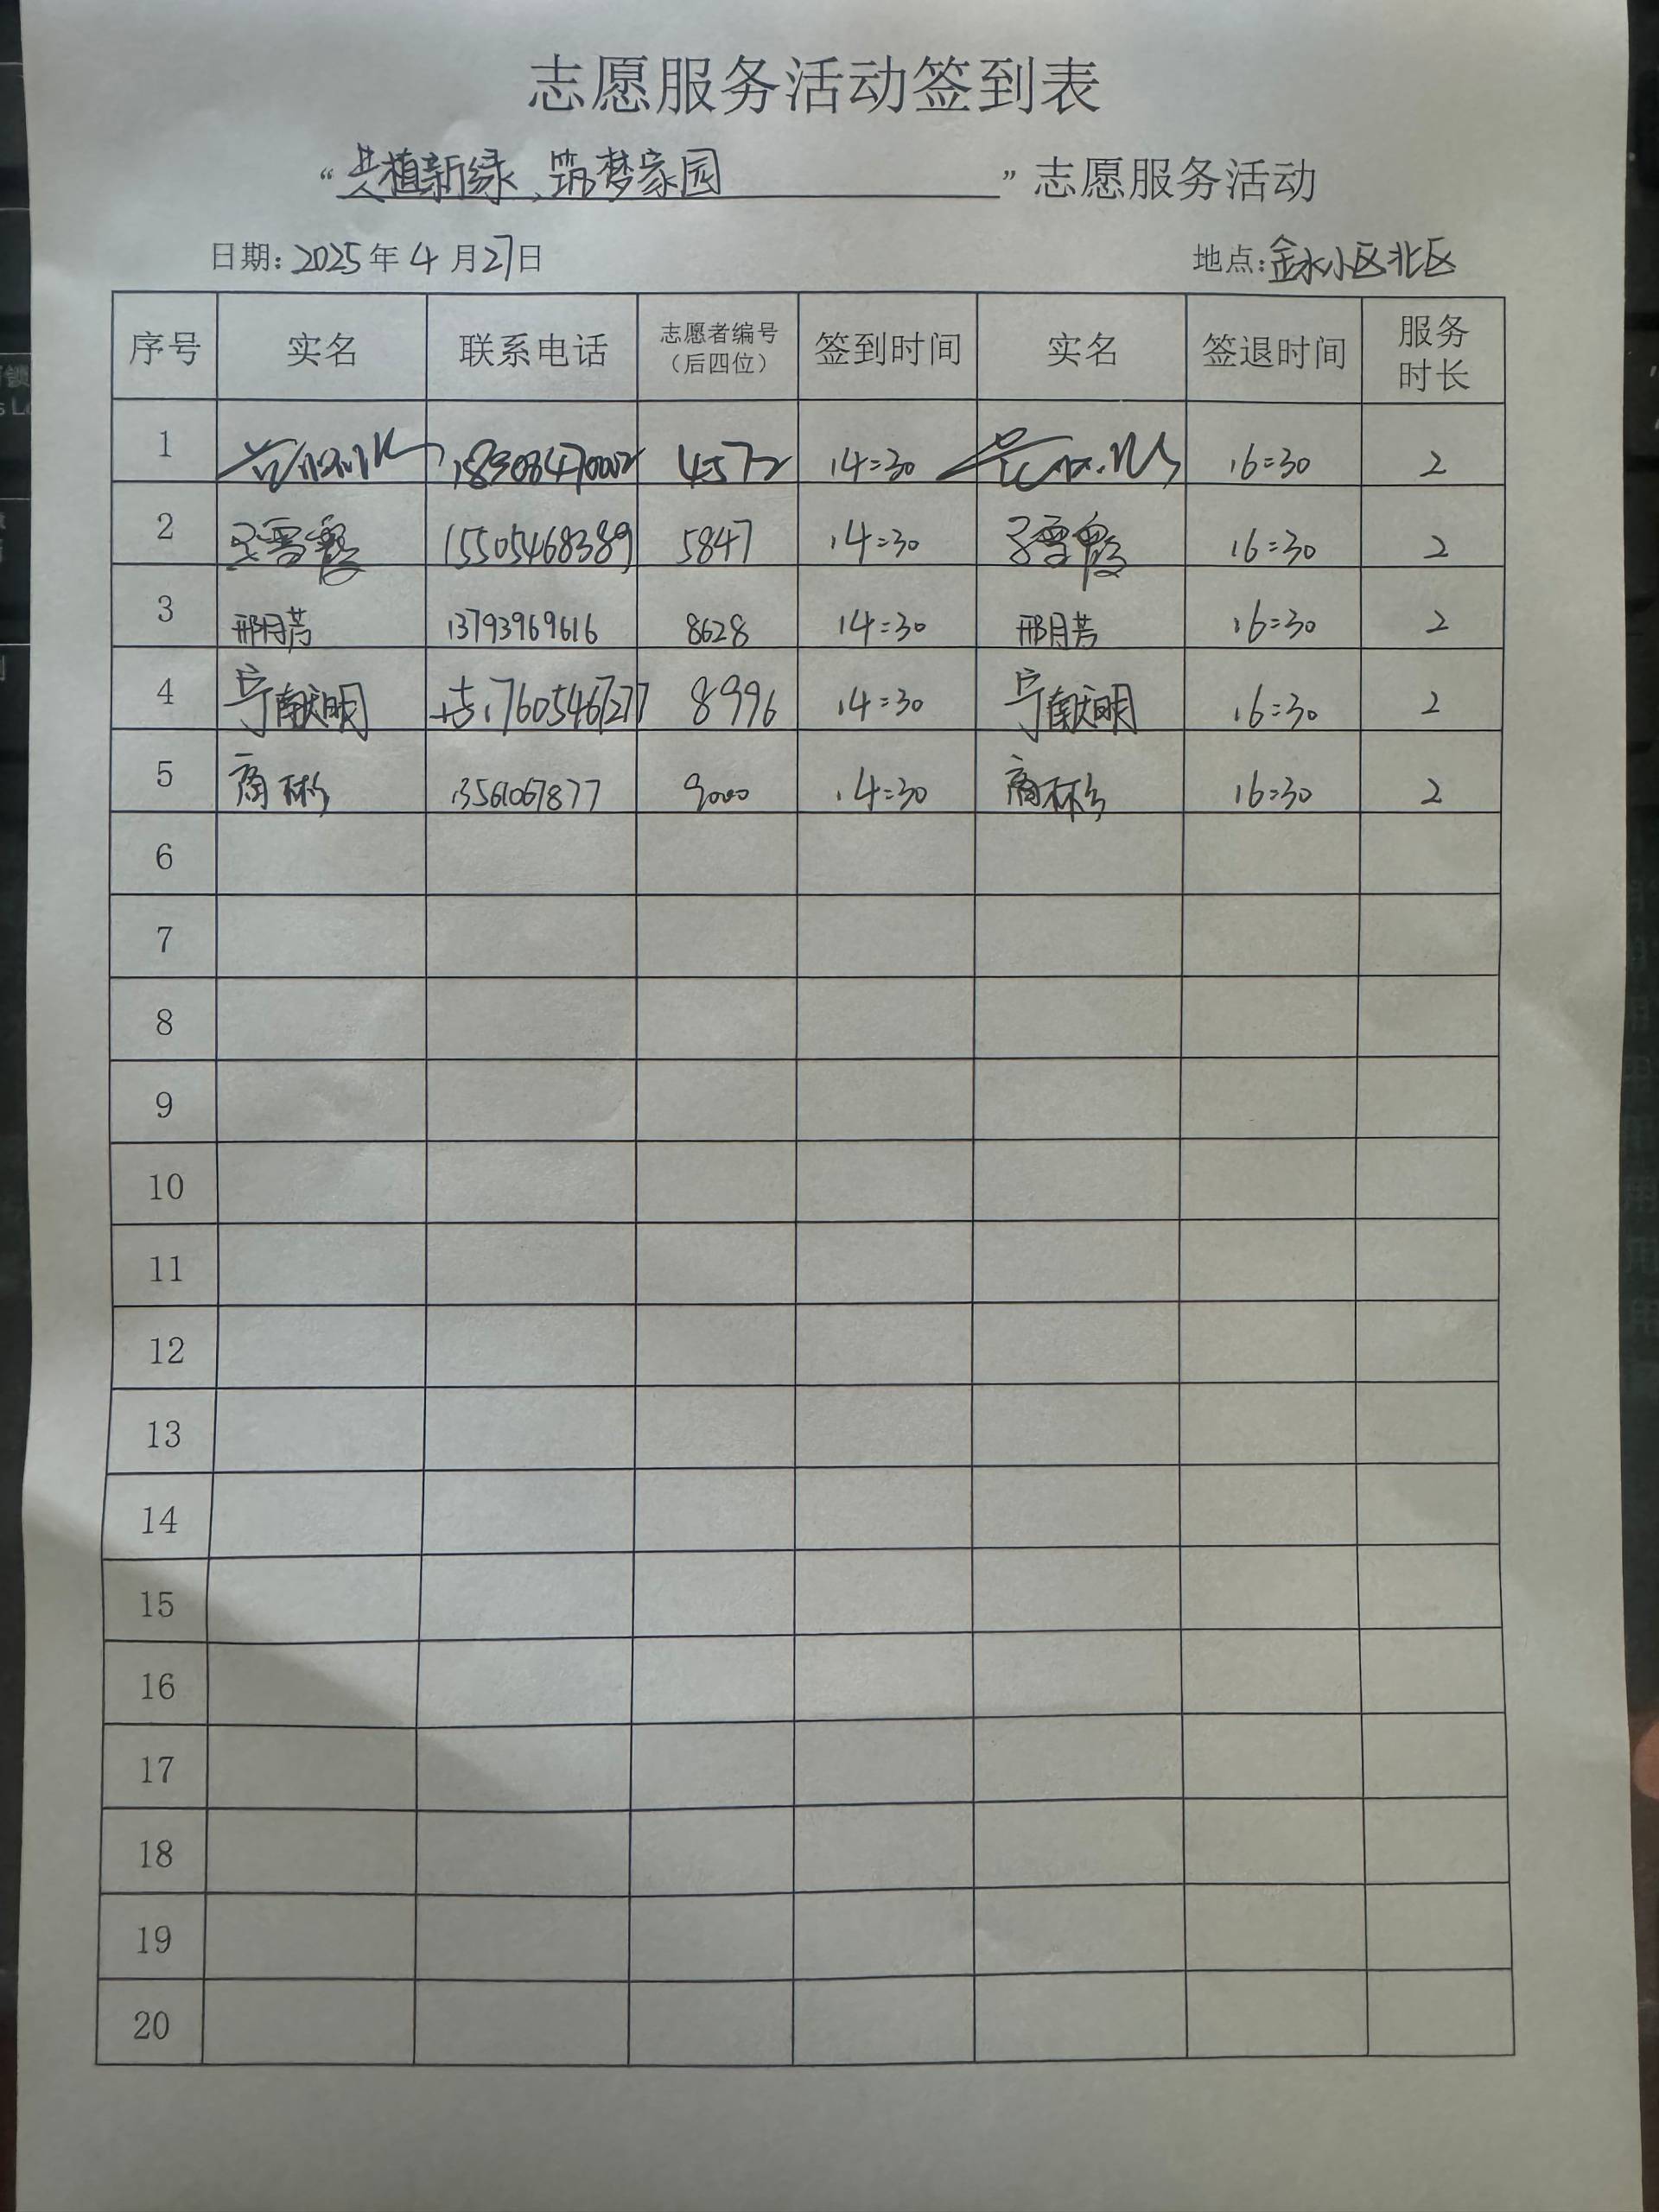 志愿服务活动签到表
“共植新绿、筑梦家园”志愿服务活动
日期:2025年4月27日 地点:金水小区北区
序号 实名 联系电话 志愿者编号（后四位） 签到时间 实名 签退时间 服务时长
1 4572 14:30 16:30 2
2 15505468389 5847 14:30 16:30 2
3 邢月芳 13793969616 8628 14:30 邢月芳 16:30 2
4 宁献明 17605467277 8996 14:30 宁献明 16:30 2
5 商彬彬 13561067877 9000 14:30 商彬彬 16:30 2
6
7
8
9
10
11
12
13
14
15
16
17
18
19
20